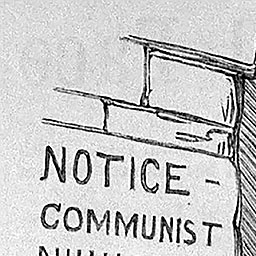 NOTICE -
COMMUNIST